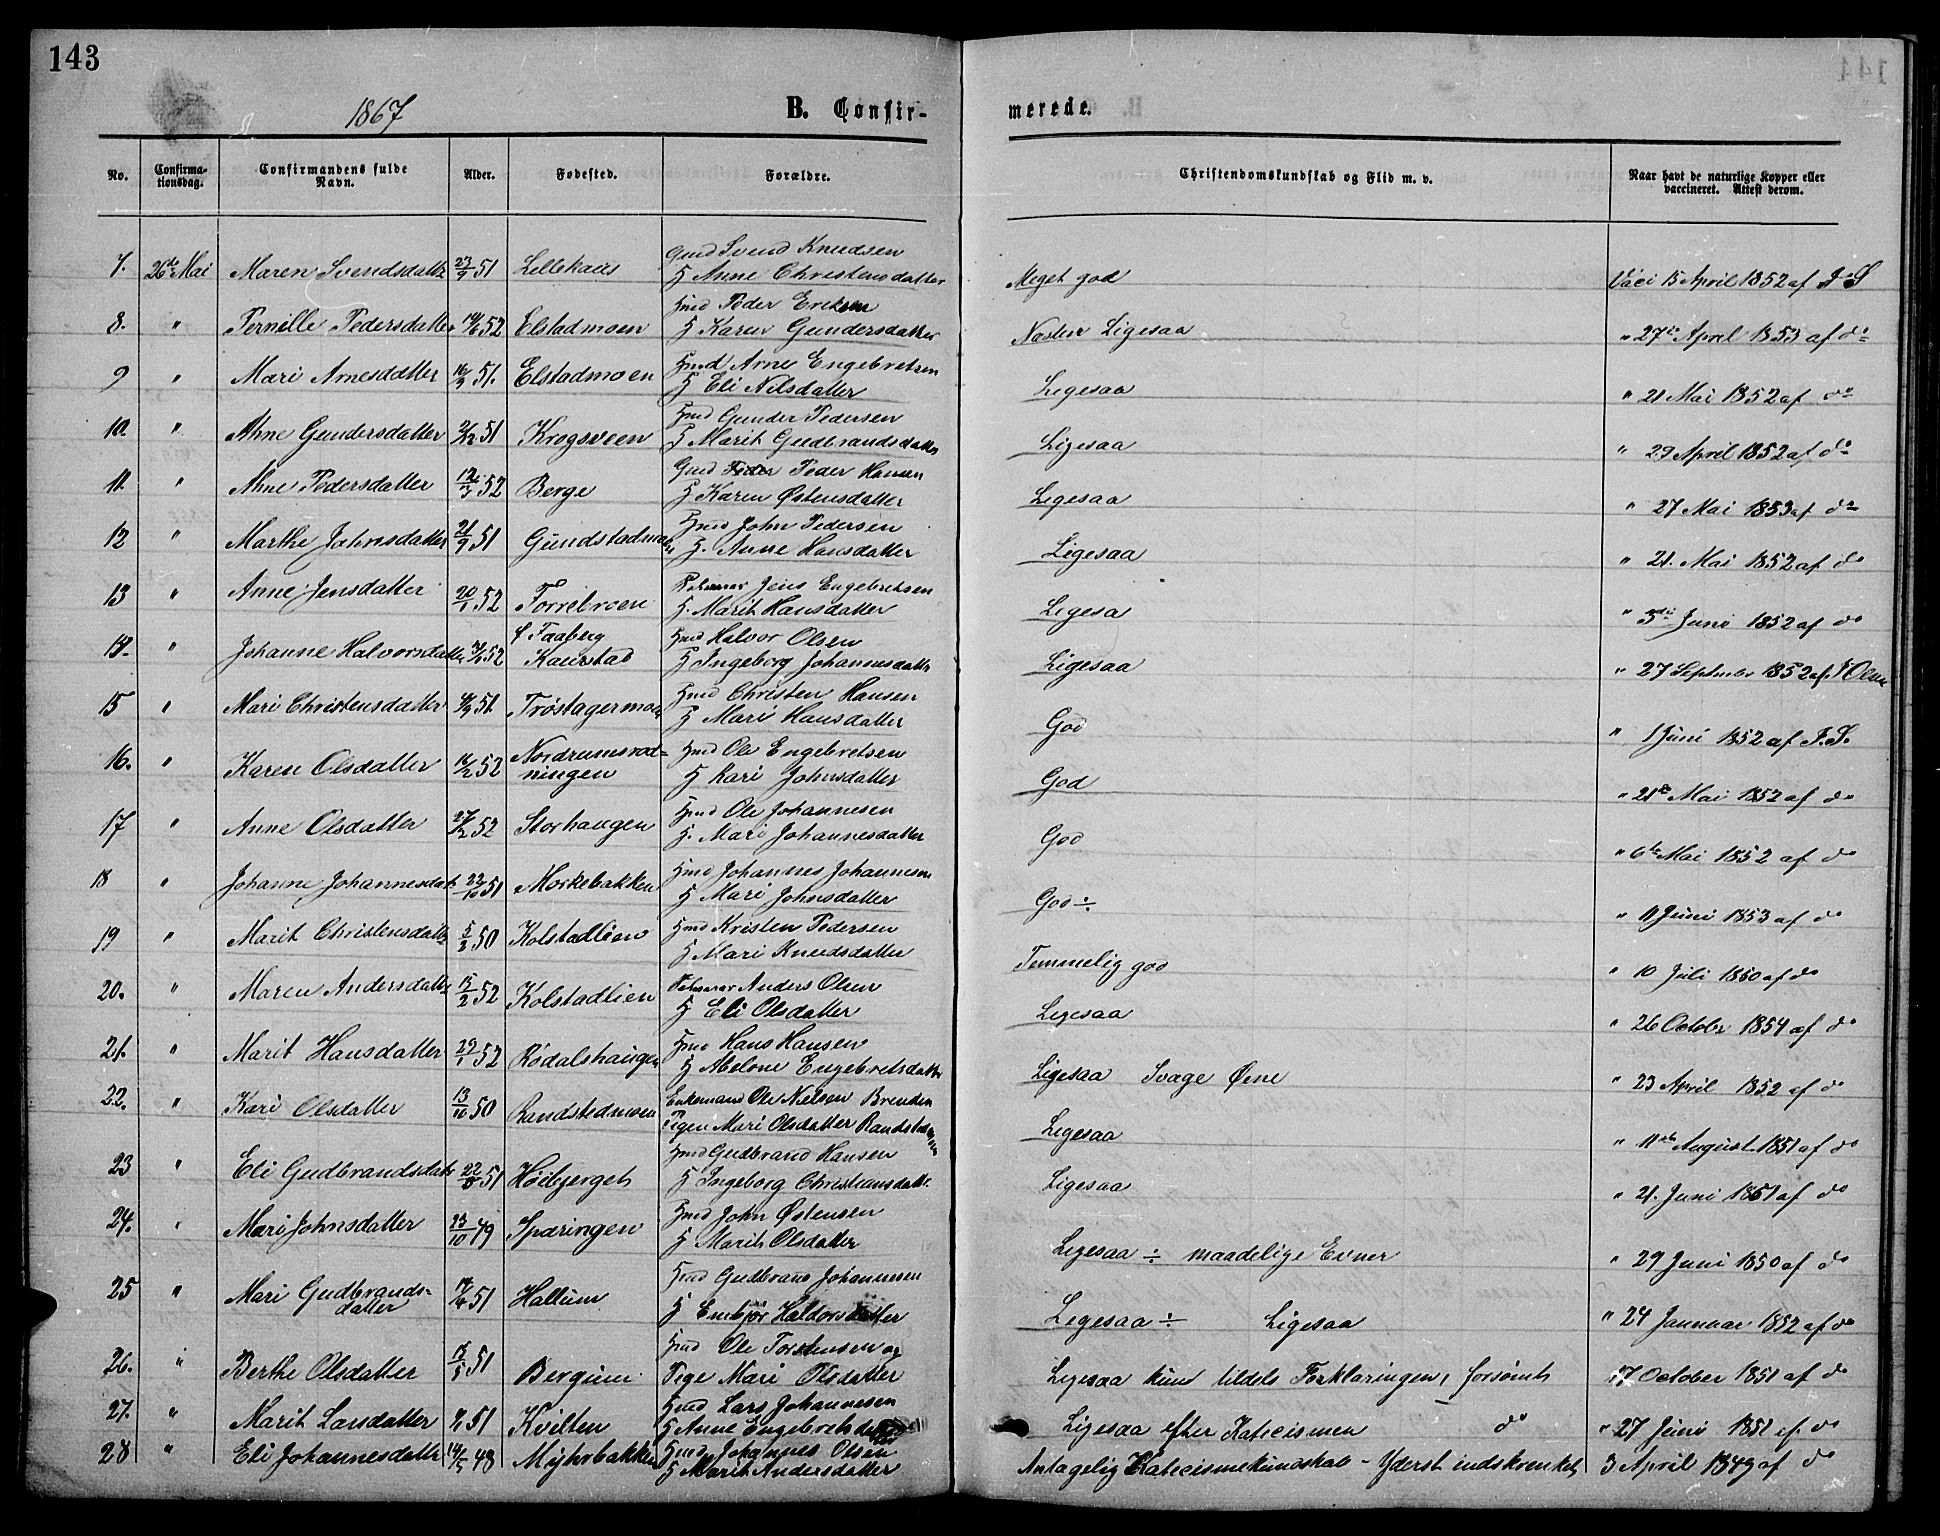 143
1867
B. Confirmerede.
No. Confirmationsdag. Confirmandens fulde Navn. Alder. Fødested. Forældre. Christendomskundskab og Flid m. v. Naar havt de naturlige Kopper eller vaccineret. Attest derom.
Gmd Svend Knudsen
7. 26de Mai Maren Svendsdatter 23/9 51 H Anne Christensdatter Meget god Vaci 15 April 1852 af J S
Hmd Peder Ericksen
8. " Pernille Pedersdatter 52 Elstadmoen H Karen Gundersdatter Næsten Ligesaa " 27de April 1853 af do
Hmd Arne Engebretsen
9 " Mari Arnesdatter 51. Elstadmoen H Eli Nilsdatter Ligesaa " 21 Mai 1852 af do
Hmd Gunder Pedersen
10. " Anne Gundersdatter 51 Krogsveen H Marit Gudbrandsdatter Ligesaa " 29 April 1852 af do
Gmd Peder Hansen
11. " Anne Pedersdatter 52 Berge H Karen Østensdatter Ligesaa " 27 Mai 1853 af do
Hmd John Pedersen
12 " Marthe Johnsdatter 21/9 51 Gundstadmoen H. Anne Hansdatter Ligesaa " 21. Mai 1852 af do
Jens Engebretsen
13 " Anne Jensdatter 20/1 52 H. Marit Hansdatter Ligesaa " 3die Juni 1852 af do
f Faaberg Hmd Halvor Olsen
14. " Johanne Halvorsdatter 52 Kaurstad H Ingeborg Johannesdatter Ligesaa " 27 September 1852 af Olsen
Hmd Christen Hansen
15 " Mari Christensdatter 51. Trøstagermoen H Mari Hansdatter God " 1 Juni 1852 af J. S.
Nordrumsrød- Hmd Ole Engebretsen
16. " Karen Olsdatter 16/2 52 ningen H Kari Johnsdatter God " 21de Mai 1852 af do
Hmd Ole Johannesen
17 " Anne Olsdatter 27/2 52 Storhaugen H. Mari Johannesdatter God " 6te Mai 1852 af do
Hmd Johannes Johannesen
18 " Johanne Johannesdatt 22/10 51 Morkebakken H Mari Johnsdatter God ÷ " 11 Juni 1853 af do
Hmd Kristen Pedersen
19 " Marit Christensdatter 5/2 50 Kolstadlien H Mari Knudsdatter Temmelig god " 10 Juli 1850 af do
Anders Olsen
20. " Maren Andersdatter 15/2 52 Kolstadlien H Eli Olsdatter Ligesaa " 26 Octobr 1854 af do
Hmd Hans Hansen
21. " Marit Hansdatter 29/1 52 Rødalshaugen H Abelone Engebretsdatter Ligesaa Svage Øine " 23 April 1852 af do
Enkemand Ole Nielsen Brenden
22. " Kari Olsdatter 13/10 50 Randstedmoen Pigen Mari Olsdatter Randstedmoen Ligesaa " 11te August 1851 af do
Hmd Gudbrand Hansen
23 " Eli Gudbrandsdatt 51 Høibjerget H Ingeborg Christiansdatt. Ligesaa " 21. Juni 1851 af do
Hmd John Østensen
24. " Mari Johnsdatter 23/10 49 Sparingen H Marit Olsdatter Ligesaa ÷ maadelige Evner " 29 Juni 1850 af do
Hmd Gudbrand Johannesen
25 " Mari Gudbrands- 51 Hallum
datter H Embjør Haldorsdatter Ligesaa ÷ Ligesaa " 24 Januar 1852 af do
Hmd Ole Torstensen og
26. " Berthe Olsdatter 51 Bergum Pige Mari Olsdatter Ligesaa kun tildels Forklaringen, forsømt 17 October 1851 af do
Hmd Lars Johannesen
27. " Marit Larsdatter 51 Kvilten H Anne Engebretsdatter Ligesaa efter Katecismen do " 27 Juni 1851 af do
Hmd Johannes Olsen
28 " Eli Johannesdatter 14/5 48 Myhrbakken H Marit Andersdatter Antagelig Katecismekundskab - Yderst indskrenket 3 April 1849 af do